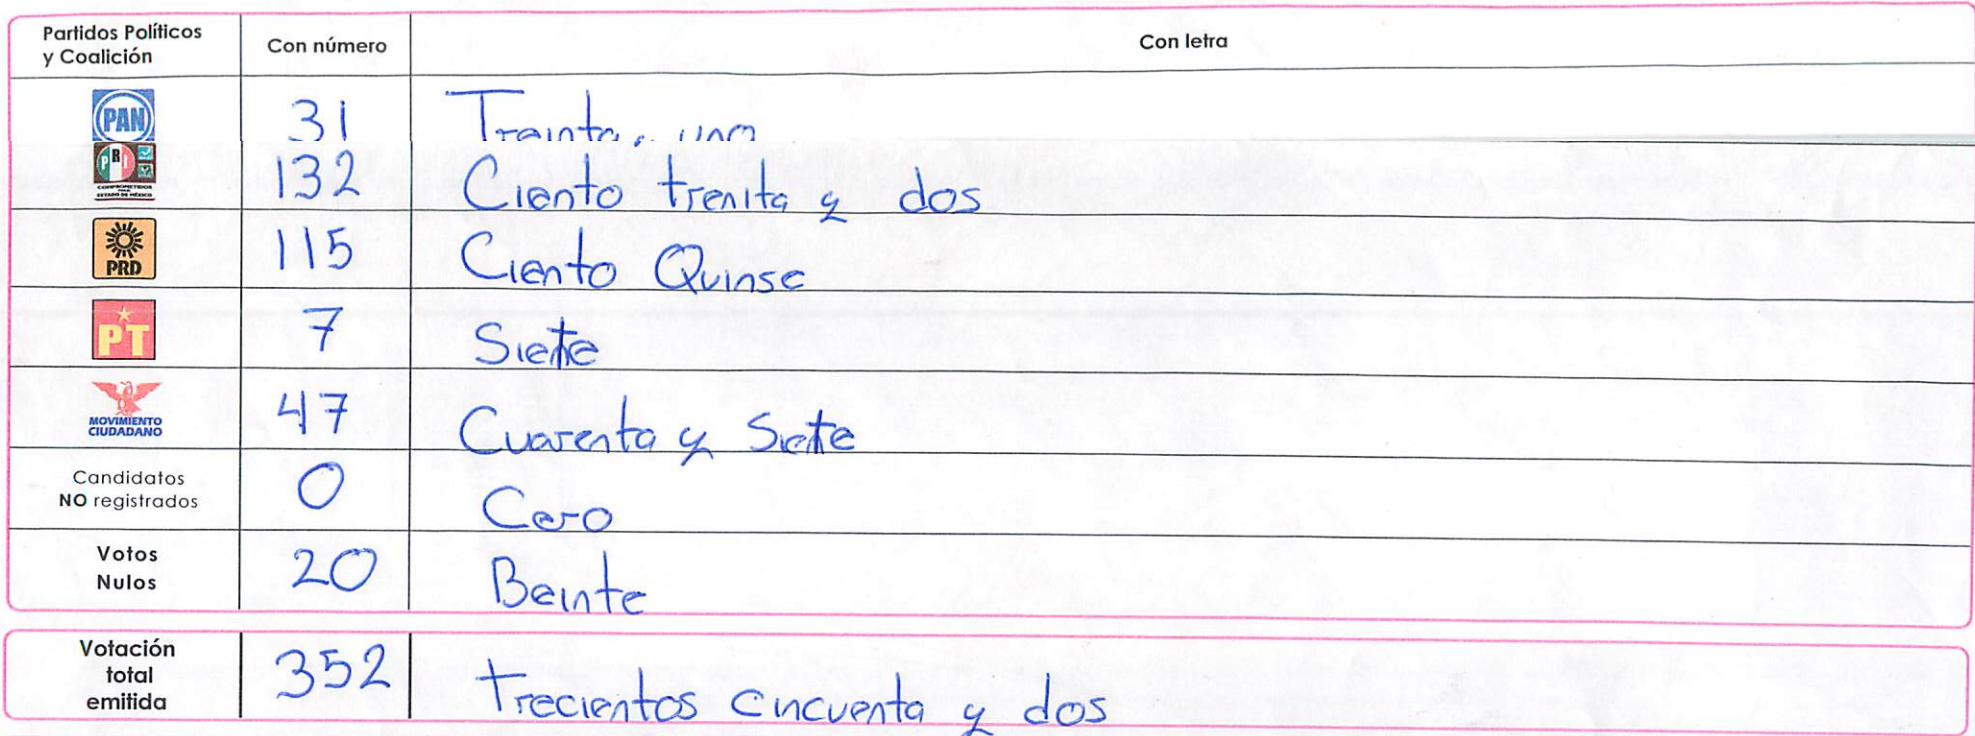 Partidos Políticos y Coalición Con número Con letra
PAN 31 Treinta, uno
PRI COMPROMETIDOS 132 Ciento trenita y dos
PRD 115 Ciento Quinse
PT 7 Siete
MOVIMIENTO CIUDADANO 47 Cuarenta y Siete
Candidatos NO registrados 0 Cero
Votos Nulos 20 Beinte
Votación total emitida 352 trecientos cincuenta y dos